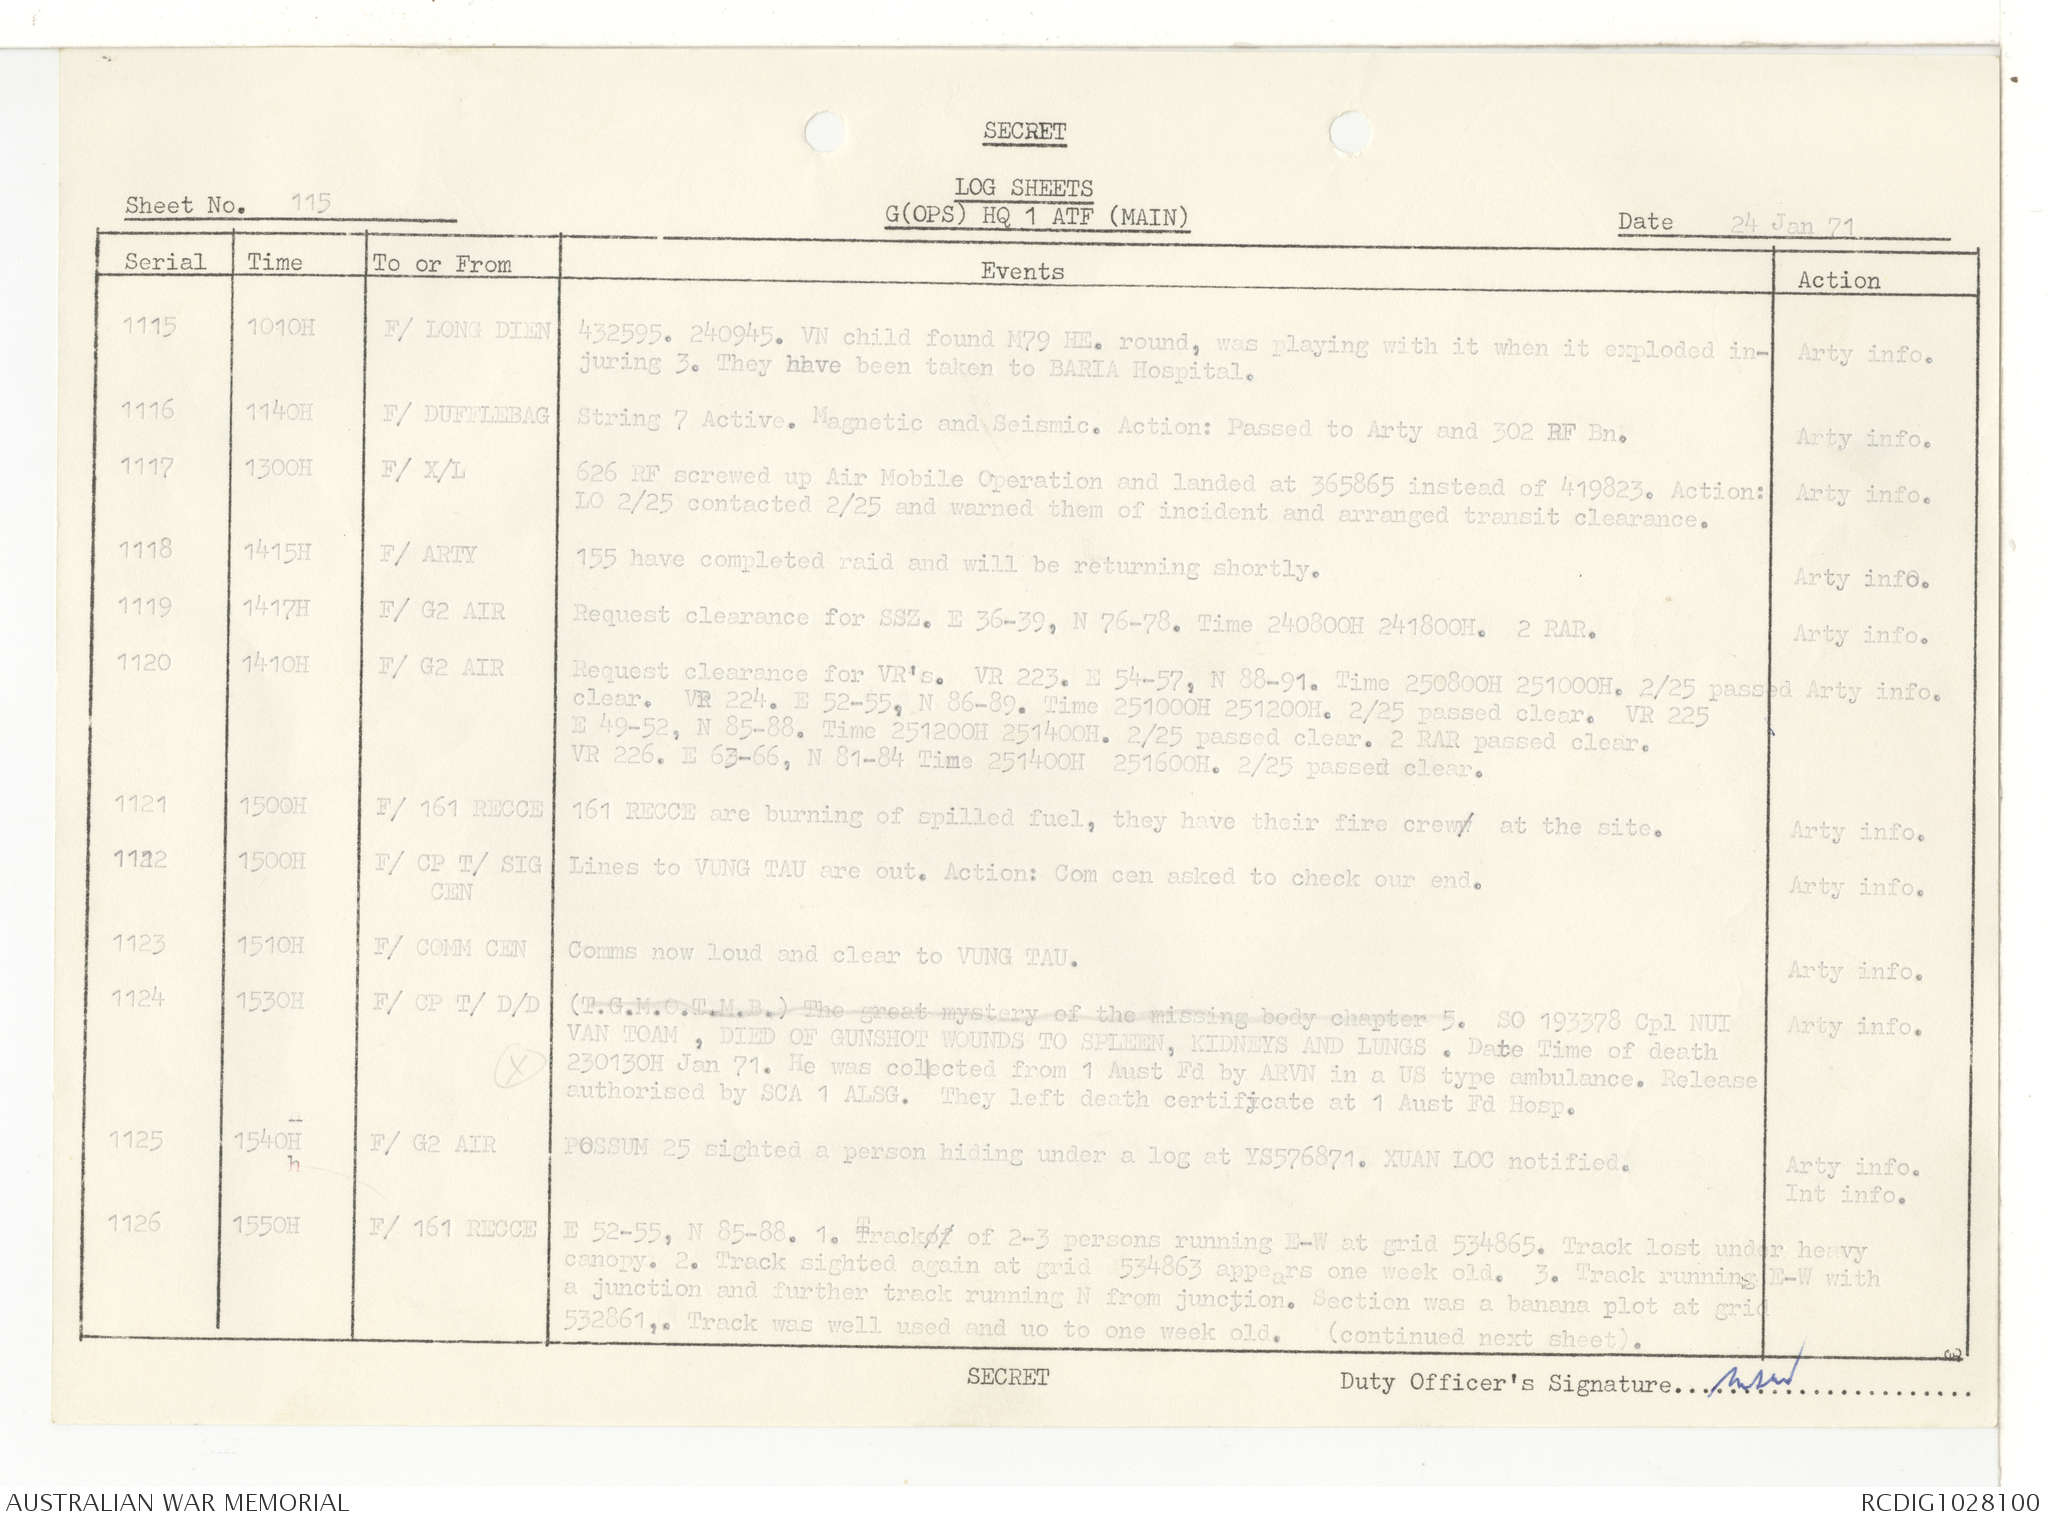 SECRET
LOG SHEETS
G(OPS) HQ 1 ATF (MAIN)
Sheet No. 115
Date 24 Jan 71
Serial Time To or From Events Action
1115 1010H F/ LONG DIEN 432595. 240945. VN child found M79 HE. round, was playing with it when it exploded in- Arty info.
juring 3. They hhve been taken to BARIA Hospital.
1116 1140H F/ DUFFLEBAG String 7 Active. Magnetic and Seismic. Action: Passed to Arty and 302 RF Bn. Arty info.
1117 1300H F/ X/L 626 RF screwed up Air Mobile Operation and landed at 365865 instead of 419823. Action: Arty info.
LO 2/25 contacted 2/25 and warned them of incident and arranged transit clearance.
1118 1415H F/ ARTY 155 have completed raid and will be returning shortly. Arty info.
1119 1417H F/ G2 AIR Request clearance for SSZ. E 36-39, N 76-78. Time 240800H 241800H. 2 RAR. Arty info.
1120 1410H F/ G2 AIR Request clearance for VR's. VR 223. E 54-57, N 88-91. Time 250800H 251000H. 2/25 passed Arty info.
clear. VR 224. E 52-55, N 86-89. Time 251000H 251200H. 2/25 passed clear. VR 225
E 49-52, N 85-88. Time 251200H 251400H. 2/25 passed clear. 2 RAR passed clear.
VR 226. E 63-66, N 81-84 Time 251400H 251600H. 2/25 passed clear.
1121 1500H F/ 161 RECCE 161 RECCE are burning of spilled fuel, they have their fire crew at the site. Arty info.
1122 1500H F/ CP T/ SIG Lines to VUNG TAU are out. Action: Com cen asked to check our end. Arty info.
CEN
1123 1510H F/ COMM CEN Comms now loud and clear to VUNG TAU. Arty info.
1124 1530H F/ CP T/ D/D (T.G.M.O.T.M.B.) The great mystery of the missing body chapter 5. SO 193378 Cpl NUI Arty info.
VAN TOAM , DIED OF GUNSHOT WOUNDS TO SPLEEN, KIDNEYS AND LUNGS . Date Time of death
X 230130H Jan 71. He was collected from 1 Aust Fd by ARVN in a US type ambulance. Release
authorised by SCA 1 ALSG. They left death certificate at 1 Aust Fd Hosp.
1125 1540H F/ G2 AIR POSSUM 25 sighted a person hiding under a log at YS576871. XUAN LOC notified. Arty info.
h Int info.
1126 1550H F/ 161 RECCE E 52-55, N 85-88. 1. Track of 2-3 persons running E-W at grid 534865. Track lost under heavy
canopy. 2. Track sighted again at grid 534863 appears one week old. 3. Track running E-W with
a junction and further track running N from junction. Section was a banana plot at grid
532861,. Track was well used and uo to one week old. (continued next sheet).
SECRET
Duty Officer's Signature
AUSTRALIAN WAR MEMORIAL
RCDIG1028100